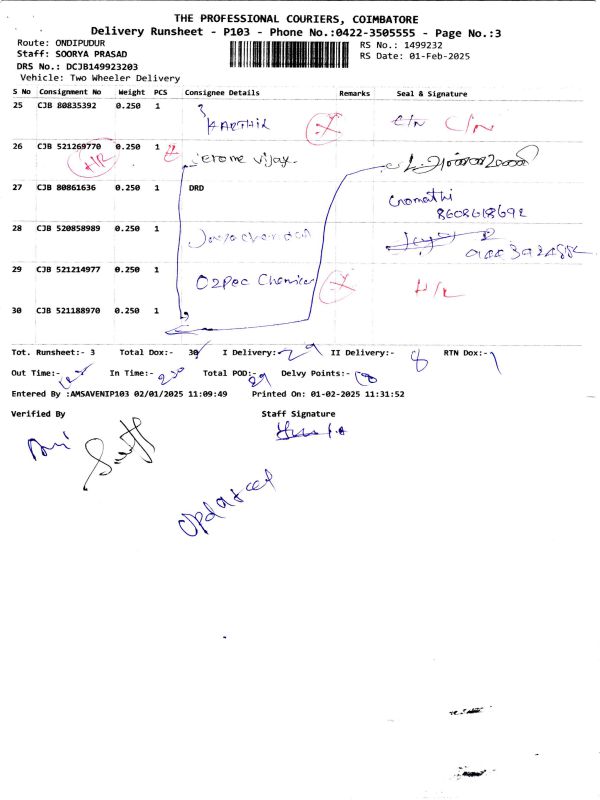 THE PROFESSIONAL COURIERS, COIMBATORE
Delivery Runsheet - P103 - Phone No.:0422-3505555 - Page No.:3
Route: ONDIPUDUR
RS No.: 1499232
Staff: SOORYA PRASAD
RS Date: 01-Feb-2025
DRS No.: DCJB149923203
Vehicle: Two Wheeler Delivery
S No Consignment No Weight PCS Consignee Details Remarks Seal & Signature
25 CJB 80835392 0.250 1
KARTHIK C/N C/N
26 CJB 521269770 0.250 1 Jerome Vijay.
H/R
27 CJB 80861636 0.250 1 DRD
Gomathi
8608618692
28 CJB 520858989 0.250 1
29 CJB 521214977 0.250 1
H/R
30 CJB 521188970 0.250 1
Tot. Runsheet:- 3 Total Dox:- 30 I Delivery:- 29 II Delivery:- 8 RTN Dox:- 1
Out Time:- In Time:- 230 Total POD:- 29 Delvy Points:-
Entered By :AMSAVENIP103 02/01/2025 11:09:49 Printed On: 01-02-2025 11:31:52
Verified By Staff Signature
updated